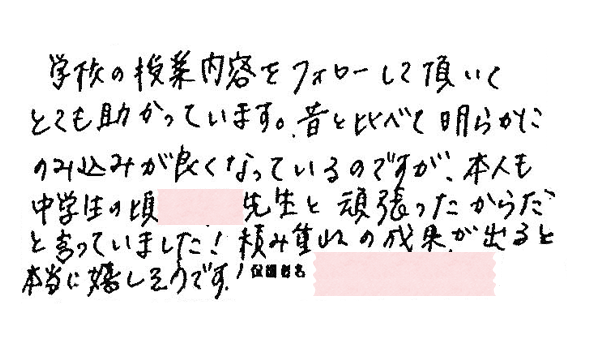 学校の授業内容をフォローして頂いて
とても助かっています。昔と比べて明らかに
のみ込みが良くなっているのですが、本人も
中学生の頃 先生と頑張ったからだ
と言っていました！積み重ねの成果が出ると
本当に嬉しそうです！